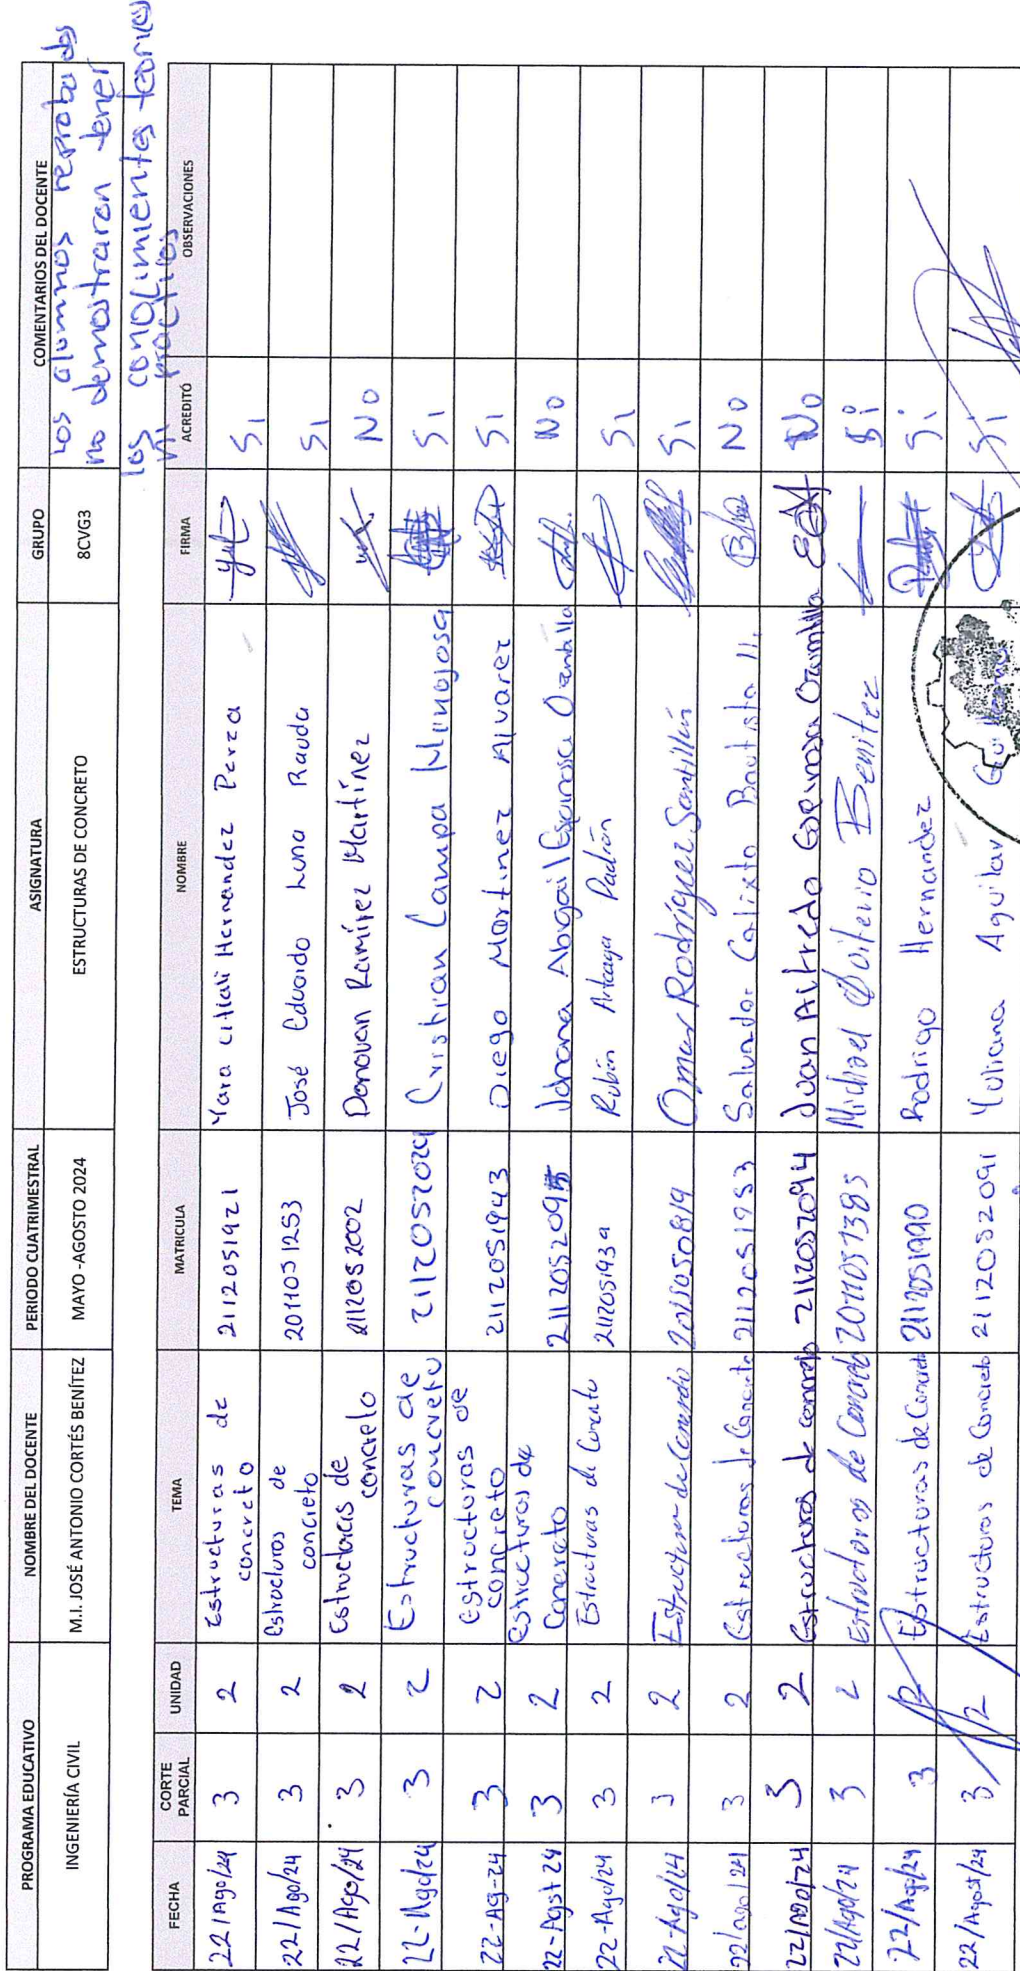 PROGRAMA EDUCATIVO NOMBRE DEL DOCENTE PERIODO CUATRIMESTRAL ASIGNATURA GRUPO COMENTARIOS DEL DOCENTE
INGENIERÍA CIVIL M.I. JOSÉ ANTONIO CORTÉS BENÍTEZ MAYO -AGOSTO 2024 ESTRUCTURAS DE CONCRETO 8CVG3
Los alumnos reprobados
no demostraron tener
los conocimientos teoricos
ni practicos
FECHA CORTE PARCIAL UNIDAD TEMA MATRICULA NOMBRE FIRMA ACREDITÓ OBSERVACIONES
22/Ago/24 3 2 Estructuras de concreto 2112051921 Yara Citlali Hernandez Perea Si
22/Ago/24 3 2 Estructuras de concreto 2011031253 José Eduardo Luna Rauda Si
22/Ago/24 3 2 Estructuras de concreto 2112052002 Donovan Ramírez Martínez No
22-Ago/24 3 2 Estructuras de concreto 2112052024 Cristian Campa Hinojosa Si
22-Ag-24 3 2 Estructuras de concreto 2112051943 Diego Martinez Alvarez Si
22-Agst 24 3 2 Estructuras de Concreto Johana Abigail Espinosa No
22-Ago/24 3 2 Estructuras de Concreto 2112051939 Rubén Arteaga Padrón Si
22-Ago/24 3 2 Estructuras de Concreto Omar Rodríguez Santillán Si
22/ago/24 3 2 Estructuras de Concreto 2112051953 Salvador Calixto Bautista No
22/Ago/24 3 2 Estructuras de concreto 2112052094 Juan Alfredo Espinosa No
22/Ago/24 3 2 Estructuras de Concreto 2011051385 Michael Benitez Si
22/Ago/24 3 2 Estructuras de Concreto 2112051990 Rodrigo Hernandez Si
22/Agost/24 3 2 Estructuras de Concreto 2112052091 Yuliana Aguilar Si